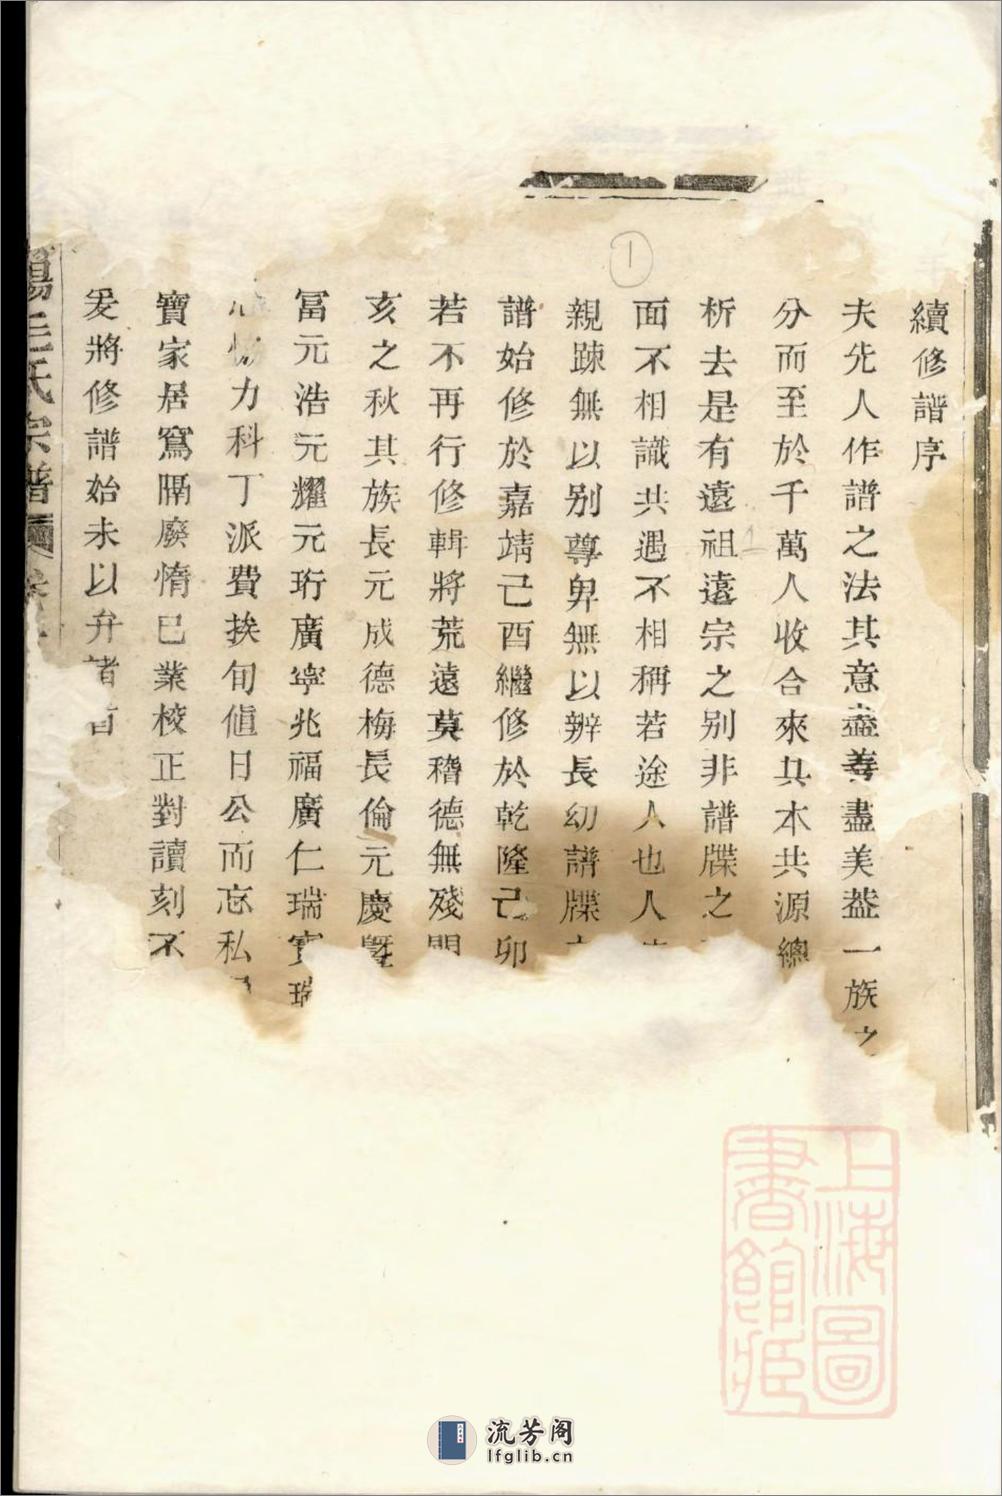 續修譜序
夫先人作譜之法其意盡善盡美葢一族之
分而至於千萬人收合來具木共源總
析去是有遠祖遠宗之别非譜牒之
面不相識共遇不相稱若途人也人
親踈無以别尊卑無以辨長幼譜牒
譜始修於嘉靖己酉繼修於乾隆己卯
若不再行修輯將荒遠莫稽德無殘
亥之秋其族長元成德梅長倫元慶
冨元浩元耀元珩廣寧兆福廣仁瑞寶瑞
力科丁派費挨旬値日公而忘私
寶家居窵隔廢惰巳業校正對讀刻不
爰將修譜始末以弁諸首
陽王氏宗譜
1
上海圖書館藏
流芳阁
lfglib.cn